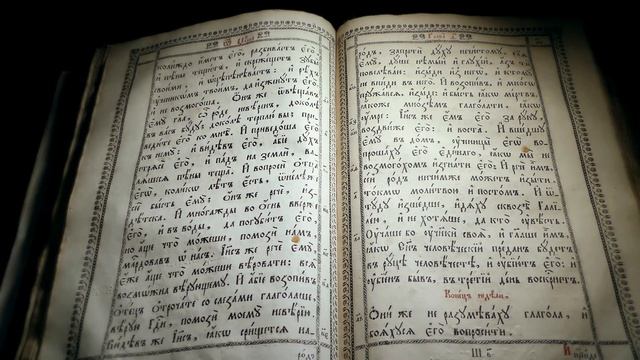 ѿ Марка
Глава Ѳ
колиждо иметъ єго, разбиваетъ єго,
и пѣны тещитъ, и скрежещетъ зꙋбы
своими, и ѡцѣпеневаетъ: и рѣхъ
ꙋченикѡмъ твоимъ, да изженꙋтъ єго,
и не возмогоша. Онъ же ѿвѣщавъ
ємꙋ гла, ѽ роде невѣренъ, доколѣ
въ васъ бꙋдꙋ; доколѣ терплю вы; при-
ведите єго ко мнѣ. И приведоша єго
къ немꙋ: и видѣвъ єго, абіе дꙋхъ
стрѧсе єго, и падъ на земли, ва-
лѧшесѧ пѣны теща. И вопроси ѻтца
єгѡ, колико лѣтъ єсть, ѿнелѣже
сіе бысть ємꙋ; Онъ же рече, из-
дѣтска. И многажды во ѻгнь вверже
єго, и въ воды, да погꙋбитъ єго:
но аще что можеши, помози намъ,
мл҃рдовавъ ѡ насъ. Іисъ же рече ємꙋ,
єже аще что можеши вѣровати: всѧ
возможна вѣрꙋющемꙋ. И абіе возопивъ
ѻтецъ ѻтрочате со слезами глаголаше:
вѣрꙋю Гди, помози моемꙋ невѣрію.
Видѣвъ же Іисъ, ꙗкѡ срищетсѧ на-
родъ
родъ, запрети дꙋхꙋ нечистомꙋ, гла
ємꙋ, дꙋше нѣмый и глꙋхій, азъ ти
повелѣваю: изыди из негѡ, и ктомꙋ
не вниди въ него. И возопивъ, и многѡ
прꙋжавсѧ, изыде: и бысть ꙗкѡ мертвъ,
ꙗкоже многѡмъ глаголати, ꙗкѡ
ꙋмре: Іисъ же ємъ єго за рꙋкꙋ,
воздвиже єго: и воста. И вшедшꙋ
ємꙋ въ домъ, ꙋченицы єгѡ во-
прошахꙋ єго єдинаго, ꙗкѡ мы не
возмогохомъ изгнати єго. И рече имъ,
сей родъ ничимже можетъ изыти,
токмѡ молитвою и постомъ. И ѿ-
тꙋдꙋ изшедше, идѧхꙋ сквозѣ Галі-
лею, и не хотѧше, да кто ꙋвѣсть.
Оучаше бо ꙋченики своѧ, и глаше имъ,
ꙗкѡ Сынъ человѣческій преданъ бꙋдетъ
въ рꙋцѣ человѣчестѣ, и ꙋбіютъ єго: и
ꙋбіенъ бывъ, въ третій день воскреснетъ.
Конецъ недѣли.
Они же не разꙋмѣвахꙋ глагола, и
боѧхꙋсѧ єго вопросити.